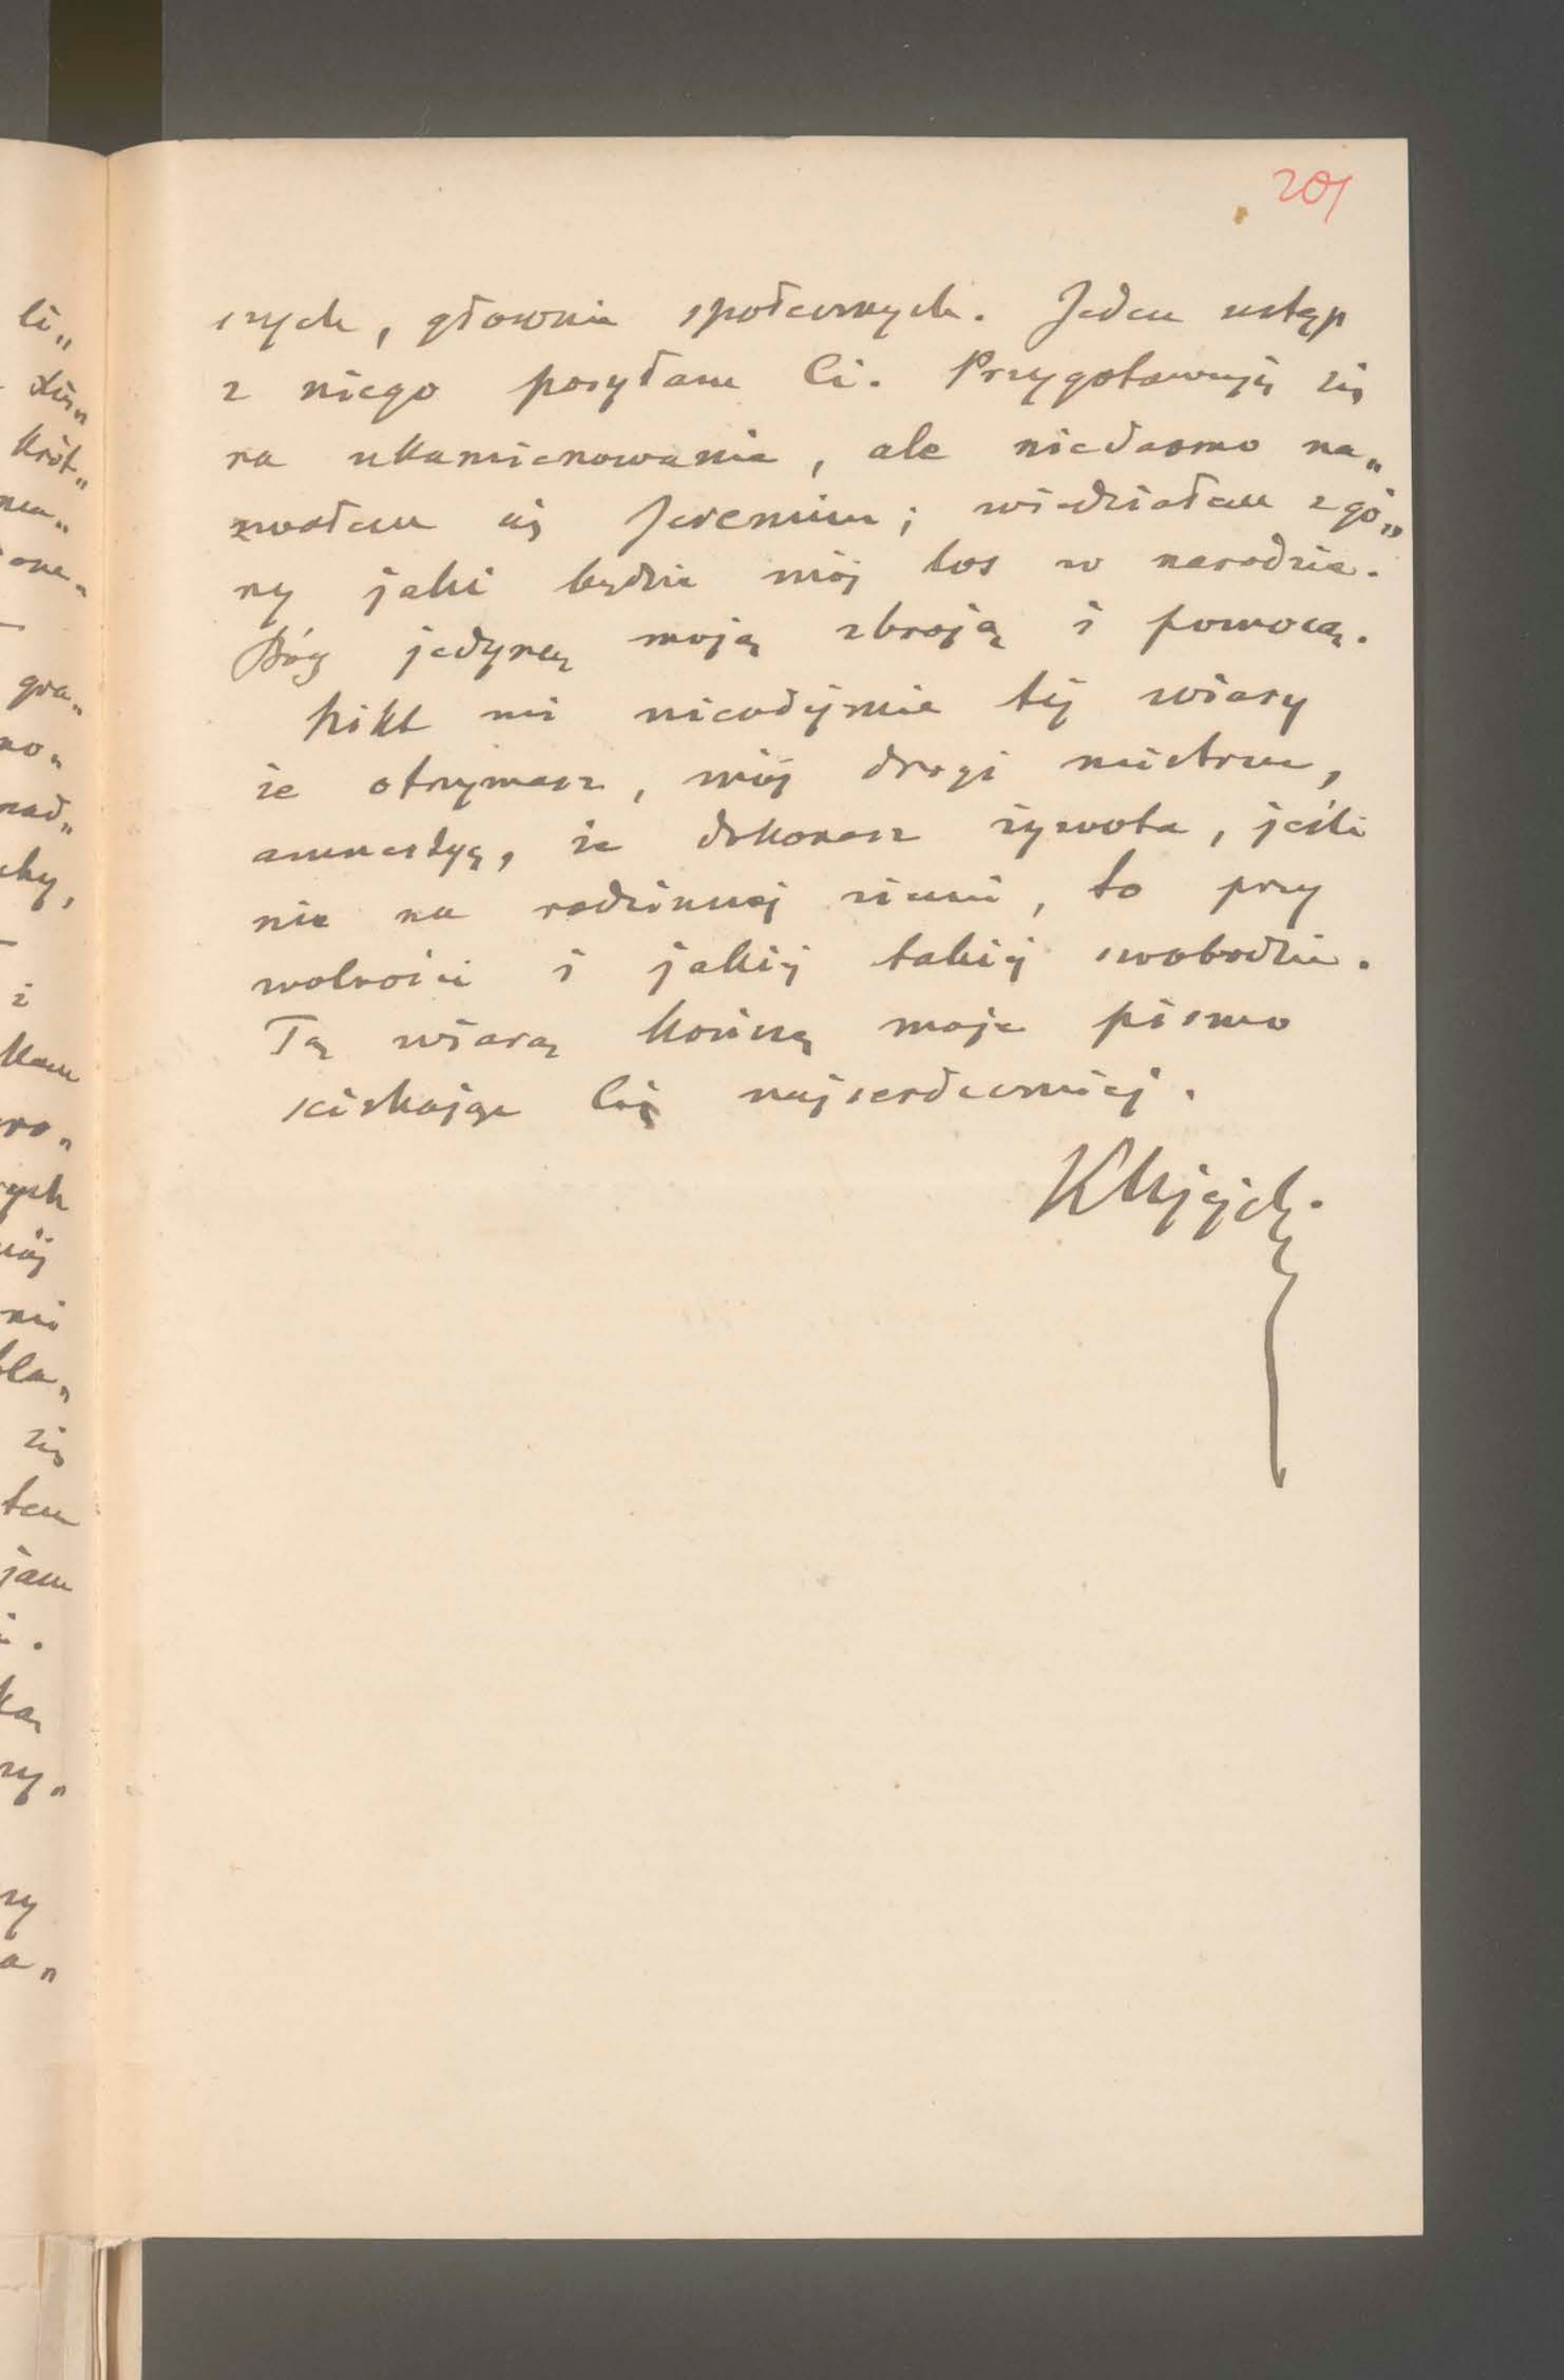 201
szych, głownie społecznych. Jeden ustęp
z niego posyłam Ci. Przygotowuję się
na ukamienowanie, ale niedarmo na„
zwałem się Jeremim; wiedziałem zgó„
ry jaki będzie mój los w narodzie.
Bóg jedyną moją zbroją i pomocą.
Nikt mi nieodéjmie téj wiary
że otrzymasz, mój drogi mistrzu,
amnestyę, że dokonasz żywota, jeśli
nie na rodzinnéj ziemi, to przy
wolności i jakiéj takiéj swobodzie.
Tą wiarą kończę moje pismo
sciskając Cię najserdeczniéj.